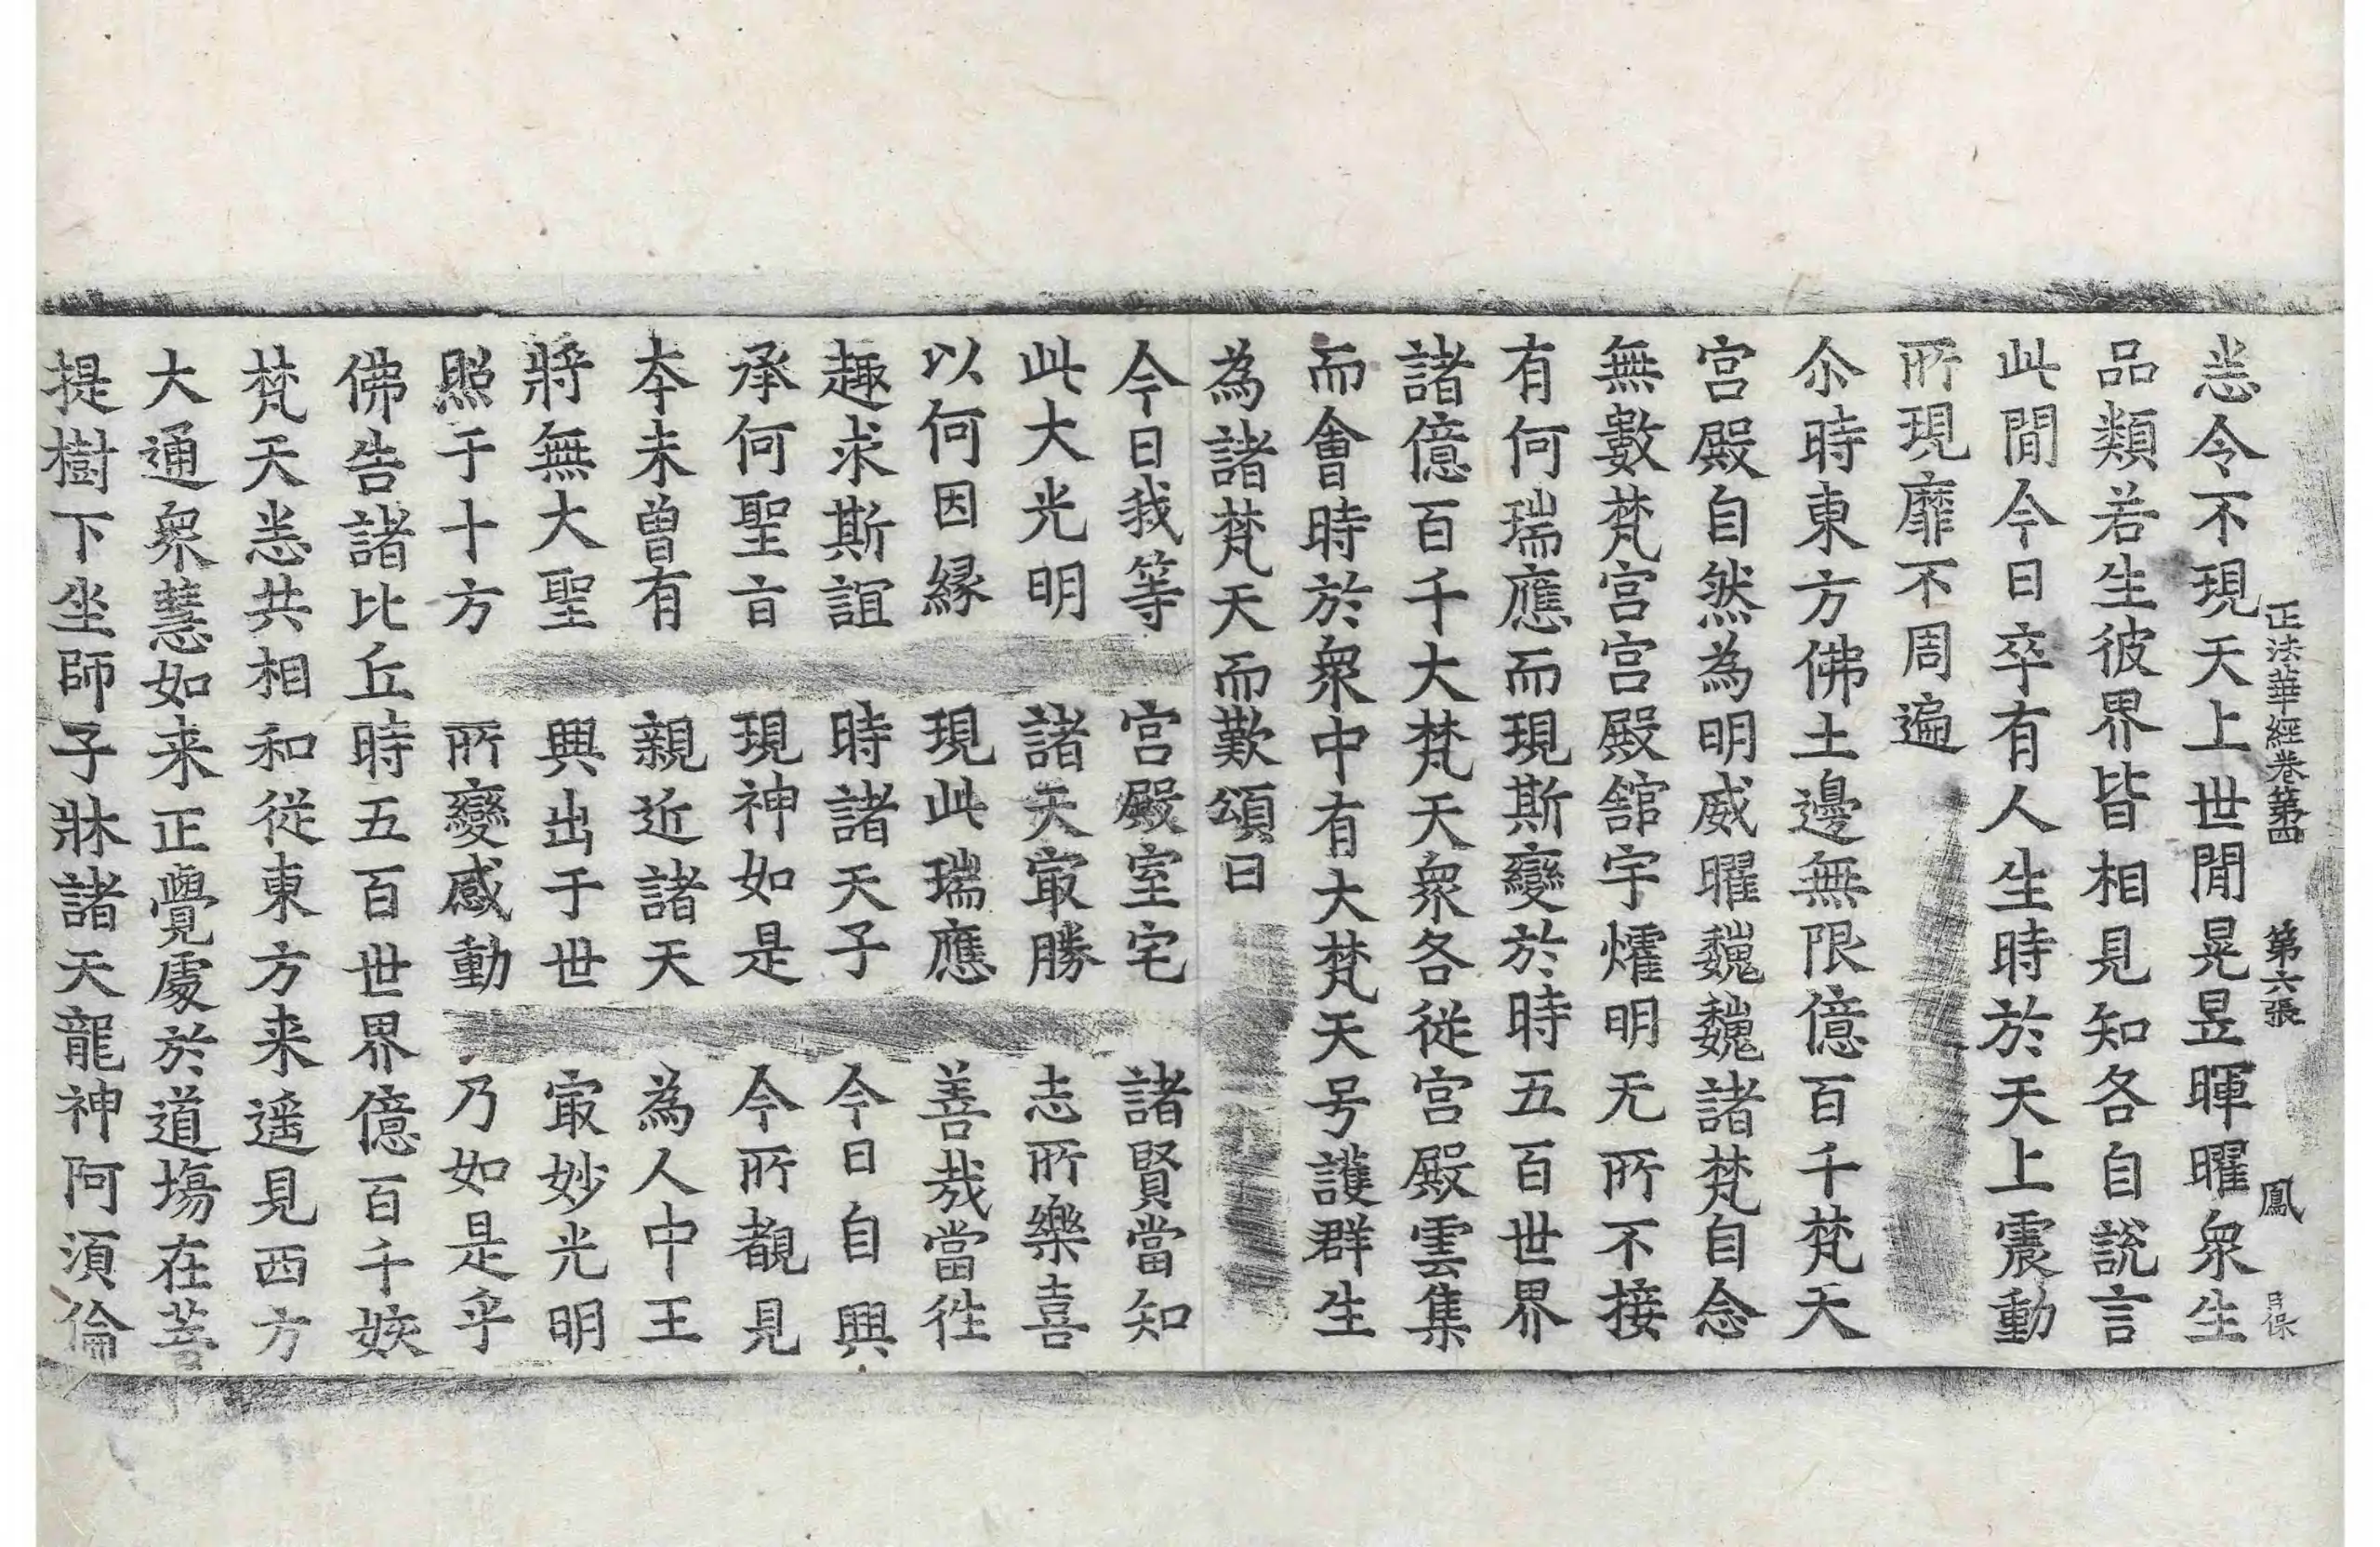 正法華經卷第四 第六張 鳳
恙令不現天上世閒晃昱暉曜衆生
品類若生彼界皆相見知各自說言
此閒今日卒有人生時於天上震動
所現靡不周遍
尒時東方佛土邊無限億百千梵天
宮殿自然為明威曜巍巍諸梵自念
無數梵宮宮殿舘宇燿明无所不接
有何瑞應而現斯變於時五百世界
諸億百千大梵天衆各從宮殿雲集
而會時於衆中有大梵天号護群生
為諸梵天而歎頌曰
今日我等 宮殿室宅 諸賢當知
此大光明 諸天冣勝 志所樂喜
以何因緣 現此瑞應 善哉當徃
趣求斯誼 時諸天子 今日自興
承何聖㫖 現神如是 今所覩見
夲未曾有 親近諸天 為人中王
將無大聖 興出于世 冣妙光明
照于十方 所變感動 乃如是乎
佛告諸比丘時五百世界億百千姟
梵天恙共相和從東方来遥見西方
大通衆慧如来正覺處於道場在菩
提樹下坐師子牀諸天龍神阿須倫